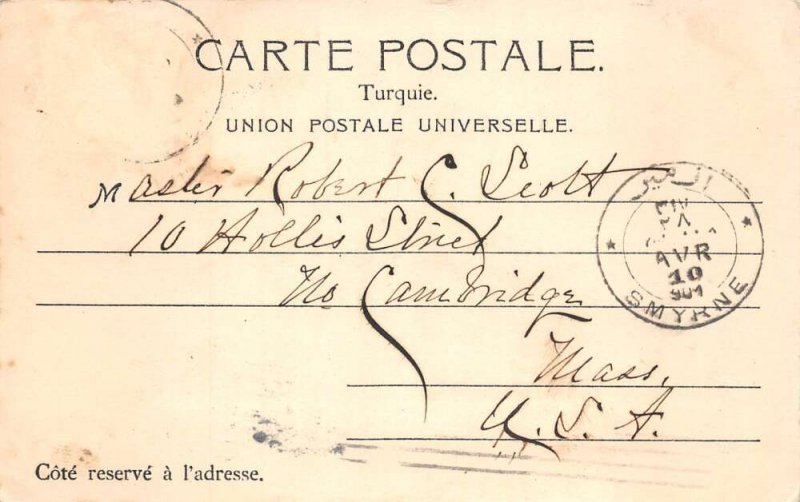 CARTE POSTALE.
Turquie.
UNION POSTALE UNIVERSELLE.
Master Robert C. Scott
10 Hollis Street
No Cambridge
Mass.
U. S. A.
AVR
10
904
SMYRNE
Côté reservé à l'adresse.